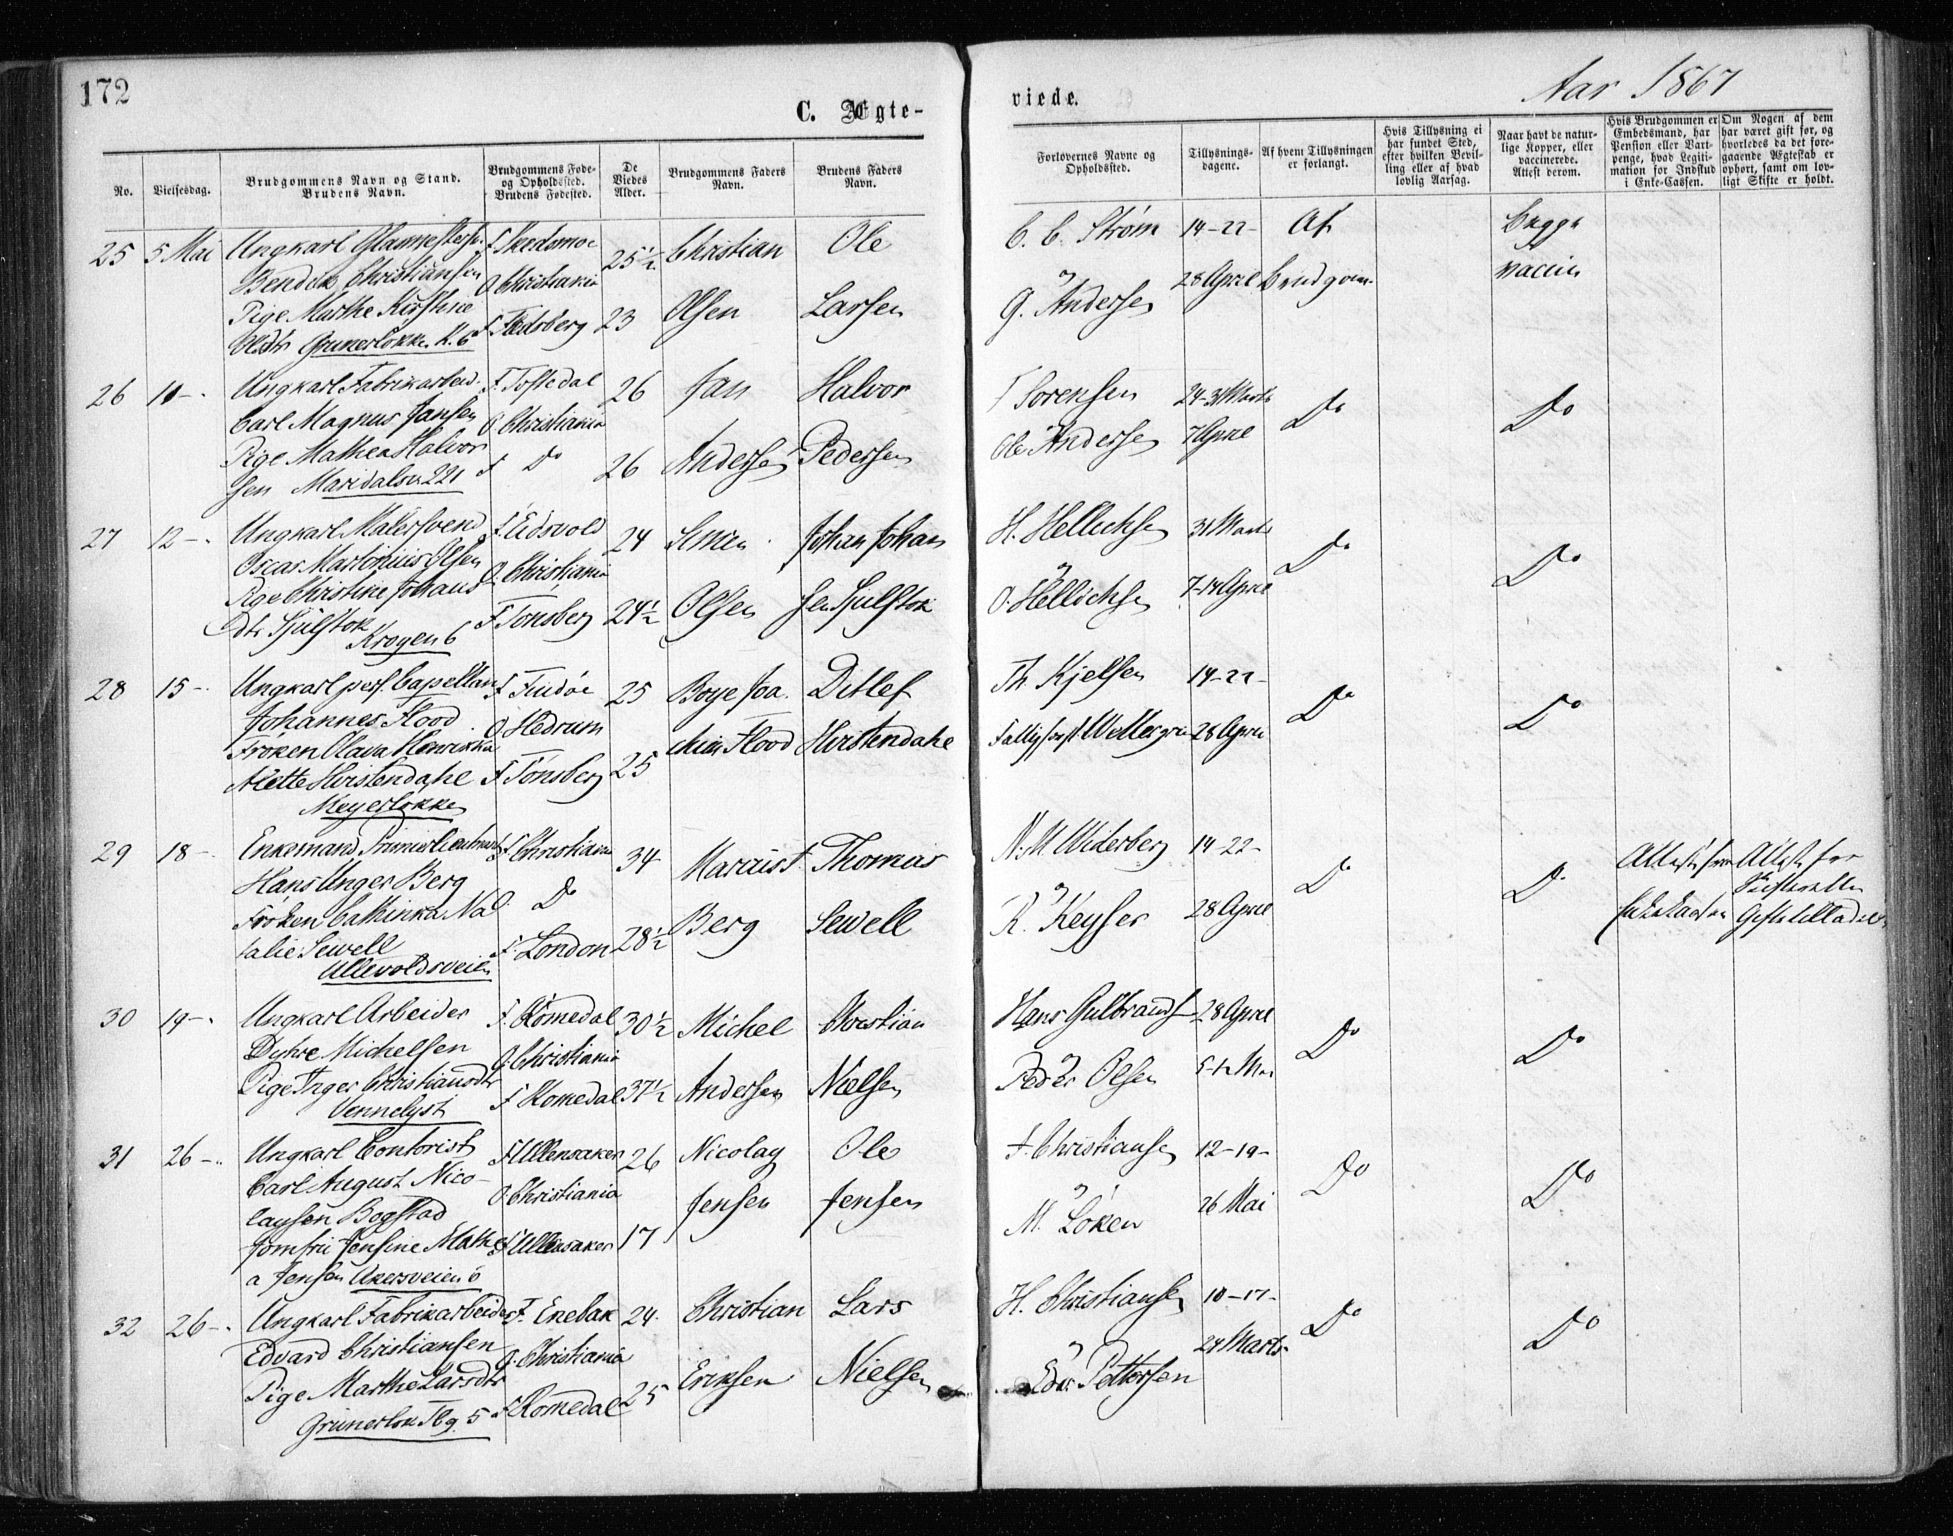 172
C. Ægte-
viede.
Aar 1867
No.
Vielsesdag.
Brudgommens Navn og Stand.
Brudens Navn.
Brudgommens Føde-
og Opholdssted.
Brudens Fødested.
De
Viedes
Alder.
Brudgommens Faders
Navn.
Brudens Faders
Navn.
Forlovernes Navne og
Opholdssted.
Tillysnings-
dagene.
Af hvem Tillysningen
er forlangt.
Hvis Tillysning ei
har fundet Sted,
efter hvilken Bevil-
ling eller af hvad
lovlig Aarsag.
Naar havt de natur-
lige Kopper, eller
vaccinerede.
Attest derom.
Hvis Brudgommen er
Embedsmand, har
Pension eller Vart-
penge, hvad Legiti-
mation for Indskud
i Enke-Cassen.
Om Nogen af dem
har været gift før, og
hvorledes da det fore-
gaaende Ægteskab er
ophørt, samt om lov-
ligt Skifte er holdt.
25 5 Mai Ungkarl Glasmestersv. F. Skedsmoe 25½ Christian Ole
C. C. Strøm 14-22- Af Begge
Bendik Christiansen O. Christiania
28 April Brudgom. vaccin
Pige Marthe Kirstine F. 23 Olsen Larsen
G. Andersen
Olsdtr Grunerløkken K. 6
26 10 - Ungkarl Fabrikarbeid. F. Tostedal 26 Jan Halvor
Sørensen 24-31 Marts Do Do
Carl Magnus Jansen O. Christiania
Ole Andersen 7 April
Pige Mathea Halvor F. Do 26 Andersen Pedersen
sen Maridalsv. 221
27 12 - Ungkarl Malersvend F. Eidsvold 24 Simen Johan Johan
H. Hellichsen 31 Marts Do Do
Oscar Martinius Olsen O. Christiania
Pige Christine Johans F. Tønsberg 24½ Olsen sen Sjulstok
O. Hellichsen 7-14 April
Dtr Sjulstok
Krogen 6
28 15 - Ungkarl pers. Capellan F. Findøe 25 Boye Joa. Ditlef
Th. Kjelsen 14-22- Do Do
Johannes Flood O. Hedrum chim Flood Hvistendahl
28 April
Frøken Olava Henrikka
Alette Hvistendahl F. Tønsberg 25
Meyerløkken
29 18 - Enkemand Premierlieutnant F. Christiania 34 Thomas
N. M. Widerberg 14-22- Do Do Attest for Attest for
Hans Unger Berg O. Do
Frøken Cathinka Na F. London 28½ Berg Sewell
R. Keyser 28 April
talie Sewell
Ullevoldsveien
30 19 - Ungkarl Arbeider F. Romedal 30½ Michel Christian
Hans Gulbrands 28 April Do Do
Dyhre Michelsen O. Christiania
Pige Inger Christiansdtr F. Romedal 37½ Andersen Nielsen
Peder Olsen 5-12 Mai
Vennelyst
31 26 - Ungkarl Contorist F. Ullensaker 26 Nicolay Ole
Christiansen 12-19- Do Do
Carl August Nico- O. Christiania Jensen Jensen
M. Løken 26 Mai
laysen Bogstad
Jomfru Jensine Mathe F. Ullensaker 17
a Jensen Akersveien 6
32 26 - Ungkarl Fabrikarbeider F. Enebak 24 Christian Lars
H. Christiansen 10-17- Do Do
Edvard Christiansen O. Christiania
24 Marts
Pige Marthe Larsdtr F. Romedal 25 Eriksen Nielsen
Edv. Pettersen
Grünerløk Tbg. 5